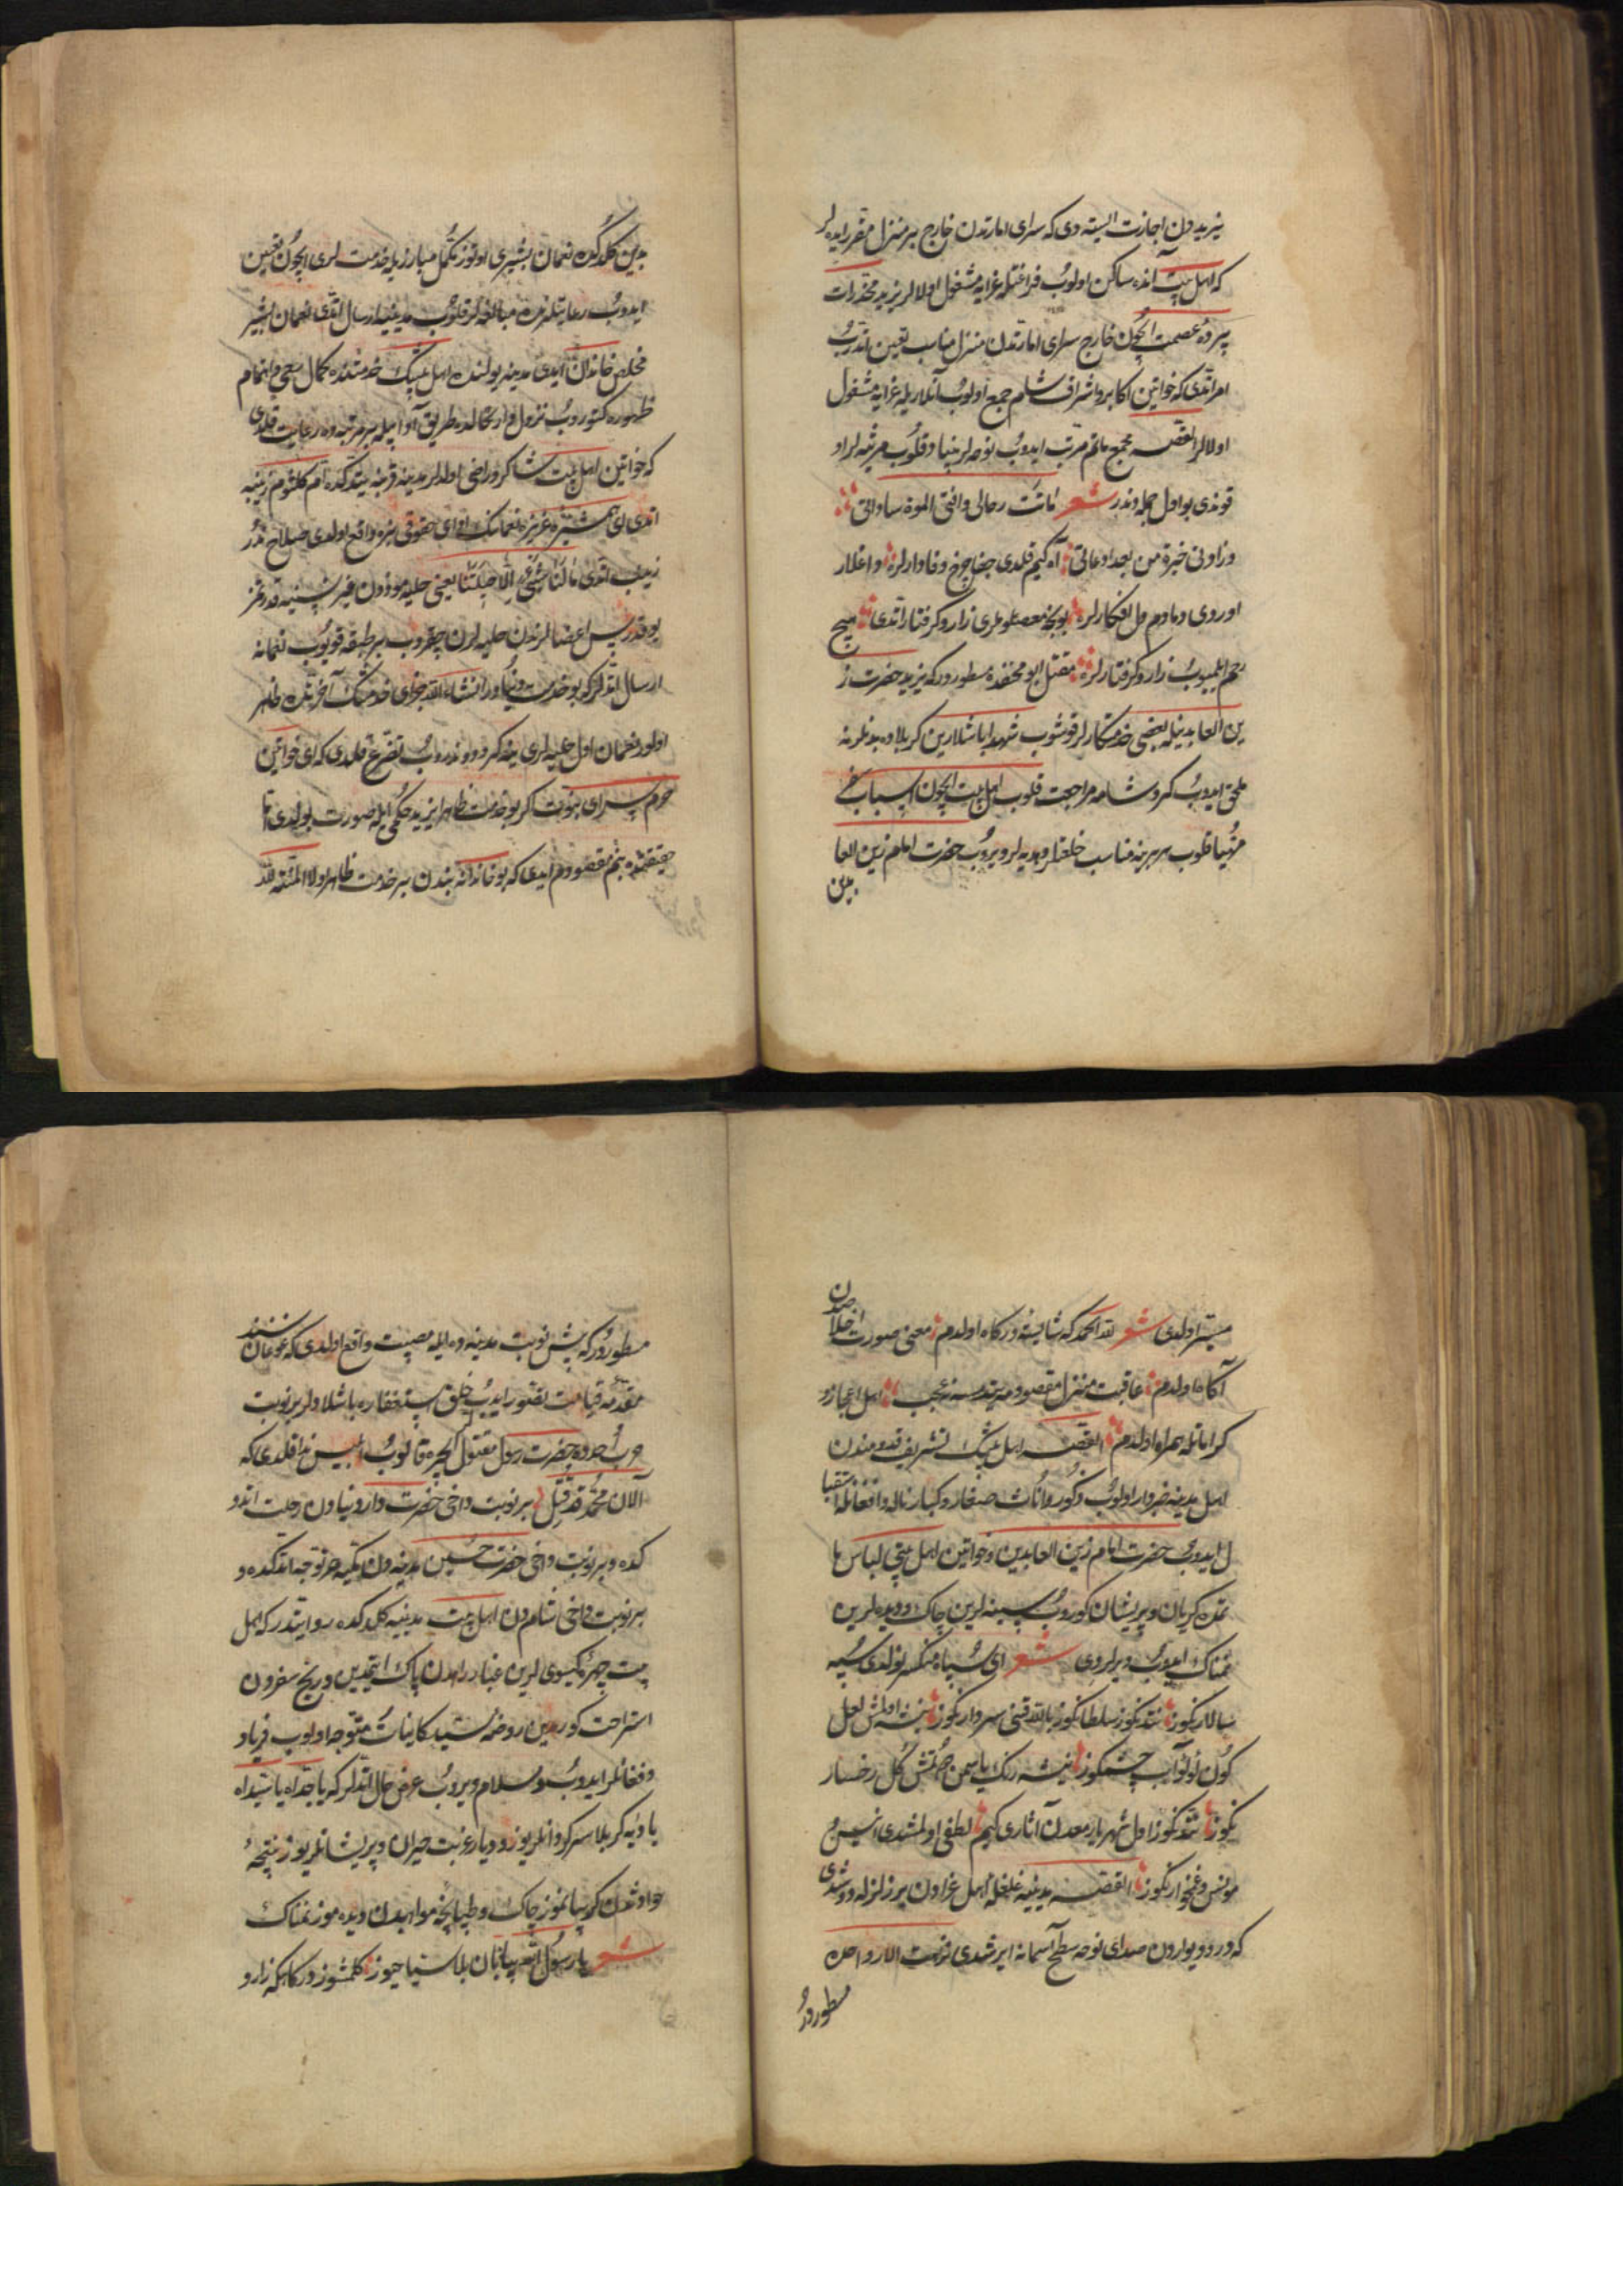 یزیددن اجازت ایسته دی که سرای امارتدن خارج بر منزل مقرر ایده لر
که اهل بیت آنده ساکن اولوب فراغتله عزایه مشغول اولالر یزید مخدرات
پرده عصمت ایچون خارج سرای امارتدن منزل مناسب تعین اتدروب
امر اتدی که خواتین اکابر و اشراف شام جمع اولوب آنلاریله عزایه مشغول
اولالر القصه مجمع ماتم مرتب ایدوب نوحه لر بنیاد قلوب مرثیه لر او
قوندی بو اول جمله دندر شعر ماتت رجالی وافنی الموة ساداتی
وزادنی حیرة من بعد لوعاتی آه کیم قلدی جفا چرخ وفادارلره داغلار
اوردی دمادم دل افکارلره بونجه معصوملری زار و گرفتار اتدی هیچ
رحم ایلمیوب زار و گرفتارلره مقتل ابو مخنفده مسطوردر که یزید حضرت ز
ین العابدینله بعضی خدمتکارلر قوشوب شهدا باشلارین کربلاده بدنلرنه
ملحق ایدوب گرو شامه مراجعت قلوب اهل بیت ایچون اسباب سفر
مهیا قلوب هر برینه مناسب خلعتلر و هدیه لر ویروب حضرت امام زین العا
بدین
بدین کلدکده نعمان بشیری اوتوز مکمل مبارزیله خدمت لری ایچون تعین
ایدوب رعایتلرنده مبالغه لر قلوب مدینیه ارسال اتدی نعمان بشیر
مخلص خاندان ایدی مدینیه یولنده اهل بیتک خدمتنده کمال سعی و اهتمام
ظهوره کتوروب نزول و ارتحالده طریق آدابیله بر مرتبه ده رعایت قلدی
که خواتین اهل بیت شاکر و راضی اولدلر مدینه قربنه یتدکده ام کلثوم زینبه
اتدی ای همشیره عزیزه نعمانک ادای حقوقی بزه واقع اولدی صلاح ندر
زینب اتدی مالنا شیئی الا حلیتنا یعنی حلیه موزون غیر نسنیه قدرتمز
یوقدر پس اعضالرندن حلیه لرن چقروب بر طبقه قویوب نعمانه
ارسال اتدلر که بو خدمت دنیادر انشاء الله جزای خدمتک آخرتده ظاهر
اولور نعمان اول حلیه لری ینه گرو دوندروب تضرع قلدی که ای خواتین
حرم سرای نبوت اگر بو خدمت ظاهرا یزید حکمی ایله صورت بولدی اما
حقیقتده بنم مقصودم ایدی که بو خاندانه بندن بر خدمت ظاهر اولا المنة لله
میسر اولدی شعر لله الحمد که شایسته درکاه اولدم معنی صورت اخلاصدن
آگاه اولدم عاقبت منزل مقصودمه یتدمسه نه عجب اهل اعجاز و
کراماتله همراه اولدم القصه اهل بیتک تشریف قدومندن
اهل مدینه خبردار اولوب ذکور و اناث صغار و کبار ناله و افغانله استقبا
ل ایدوب حضرت امام زین العابدین و خواتین اهل بیتی لباس ما
تمده گریان و پریشان کوروب سینه لرین چاک و دیده لرین
نمناک ایدوب دیرلردی شعر ای سپاه منکسر نولدی سپه
سالارنکوز نتدنکوز سلطانکوز بالله قنی سردارنکوز نیشه اولمش لعل
کون لولو آب چشمکوز نیشه رنک یاسمن دوتمش گل رخسار
نکوز نتدنکوز اول شهریار معدن آثاری کیم لطفی اولمشدی انیس و
مونس و غمخوارنکوز القصه مدینیه غلغله اهل عزادن بر زلزله دوشدی
که در و دیواردن صدای نوحه سطح آسمانه ایرشدی نزهت الارواحده
مسطوردر
مسطوردر که بش نوبت مدینه ده ایله مصیبت واقع اولدی که عوامان
مقدمه قیامت تصور ایدب خلق استغفاره باشلادلر بر نوبت
حرب احدده حضرت رسول مقتوللر ایچره قالوب ابلیس ندا قلدی که
الان محمد قد قتل بر نوبت داخی حضرت دار دنیادن رحلت اتدو
کده و بر نوبت داخی حضرت حسین مدینه دن مکیه توجه اتدکده و
بر نوبت داخی شامدن اهل بیت مدینیه کلدکده روایتدر که اهل
بیت چهره گیسوی لرین غبار راهدن پاک ایتمدین و رنج سفردن
استراحت کورمدین روضه سید کایناته متوجه اولوب فریاد
و فغانلر ایدوب و سلام ویروب عرض حال اتدلر که یا جداه یا سیداه
بادیه کربلا سرگردانلریوز و دیار غربت حیران و پریشانلریوز نتیجه
حوادثدن گریبانموز چاک و طپانچه موالیدن دیده موز نمناک
شعر یا رسول الله بیابان بلا سیاحیوز کلمشوز درکاهکه زار و